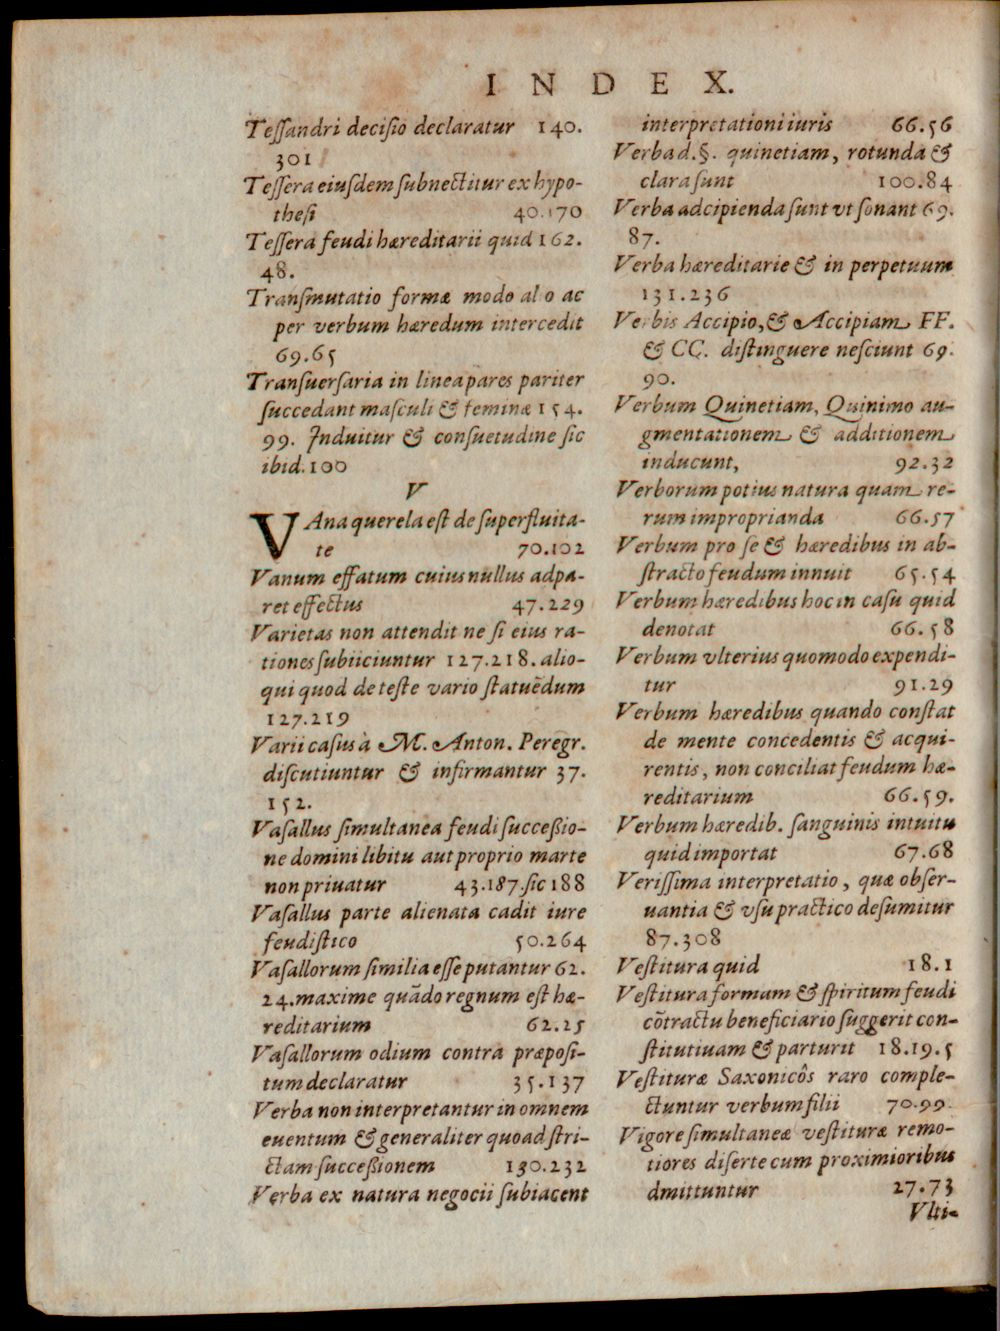 INDEX.
Teſſandri deciſio declaratur 140.
301
Teſſera eiuſdem ſubnectitur ex hypo-
theſi 40.170
Teſſera feudi hæreditarii quid 162.
48.
Tranſmutatio formæ modo al o ac
per verbum hæredum intercedit
69.65
Tranſuerſaria in linea pares pariter
ſuccedant maſculi & feminæ 154.
99. Induitur & conſuetudine ſic
ibid. 100
V
VAna querela eſt de ſuperfluita-
te 70.102
Vanum effatum cuius nullus adpa-
ret effectus 47.229
Varietas non attendit ne ſi eius ra-
tiones ſubiiciuntur 127.218. alio-
qui quod de teſte vario ſtatuēdum
127.219
Varii caſus à M. Anton. Peregr.
diſcutiuntur & infirmantur 37.
152.
Vaſallus ſimultanea feudi ſucceßio-
ne domini libitu aut proprio marte
non priuatur 43.187. ſic 188
Vaſallus parte alienata cadit iure
feudiſtico 50.264
Vaſallorum ſimilia eſſe putantur 62.
24. maxime quādo regnum eſt hæ-
reditarium 62.25
Vaſallorum odium contra præpoſi-
tum declaratur 35.137
Verba non interpretantur in omnem
euentum & generaliter quoad ſtri-
ctam ſucceßionem 130.232
Verba ex natura negocii ſubiacent
interpretationi iuris 66.56
Verba d.§. quinetiam, rotunda &
clara ſunt 100.84
Verba adcipienda ſunt vt ſonant 69.
87.
Verba hæreditarie & in perpetuum
131.236
Verbis Accipio, & Accipiam FF.
& CC. diſtinguere neſciunt 69.
90.
Verbum Quinetiam, Quinimo au-
gmentationem & additionem
inducunt, 92.32
Verborum potius natura quam re-
rum improprianda 66.57
Verbum pro ſe & hæredibus in ab-
ſtracto feudum innuit 65.54
Verbum hæredibus hoc in caſu quid
denotat 66.58
Verbum vlterius quomodo expendi-
tur 91.29
Verbum hæredibus quando conſtat
de mente concedentis & acqui-
rentis, non conciliat feudum hæ-
reditarium 66.59.
Verbum hæredib. ſanguinis intuitu
quid importat 67.68
Veriſſima interpretatio, quæ obſer-
uantia & vſu practico deſumitur
87.308
Veſtitura quid 18.1
Veſtitura formam & ſpiritum feudi
cōtractu beneficiario ſuggerit con-
ſtitutiuam & parturit 18.19.5
Veſtituræ Saxonicôs raro comple-
ctuntur verbum filii 70.99.
Vigore ſimultaneæ veſtituræ remo-
tiores diſerte cum proximioribus
dmittuntur 27.73
Vlti-